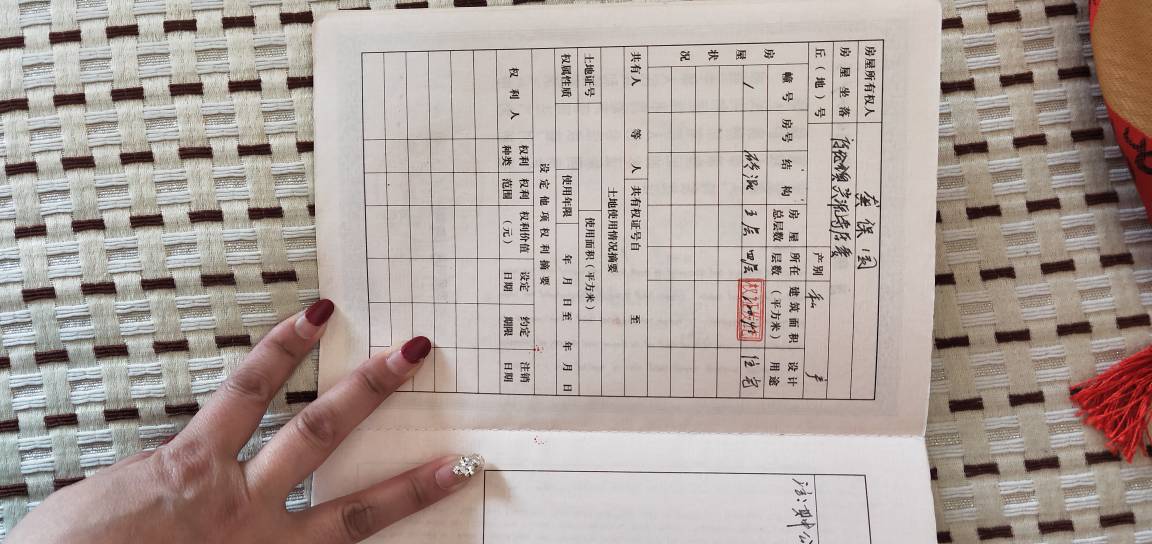 房屋所有权人
房屋坐落
丘（地）号 产别 私
房屋状况
幢号 房号 结构 房屋总层数 所在层数 建筑面积（平方米） 设计用途
1 砖混 五层 四层 住宅
共有人 等 人 共有权证号自 至
土地使用情况摘要
土地证号 使用面积（平方米）
权属性质 使用年限 年 月 日至 年 月 日
设定他项权利摘要
权利人 权利种类 权利范围 权利价值（元） 设定日期 约定期限 注销日期